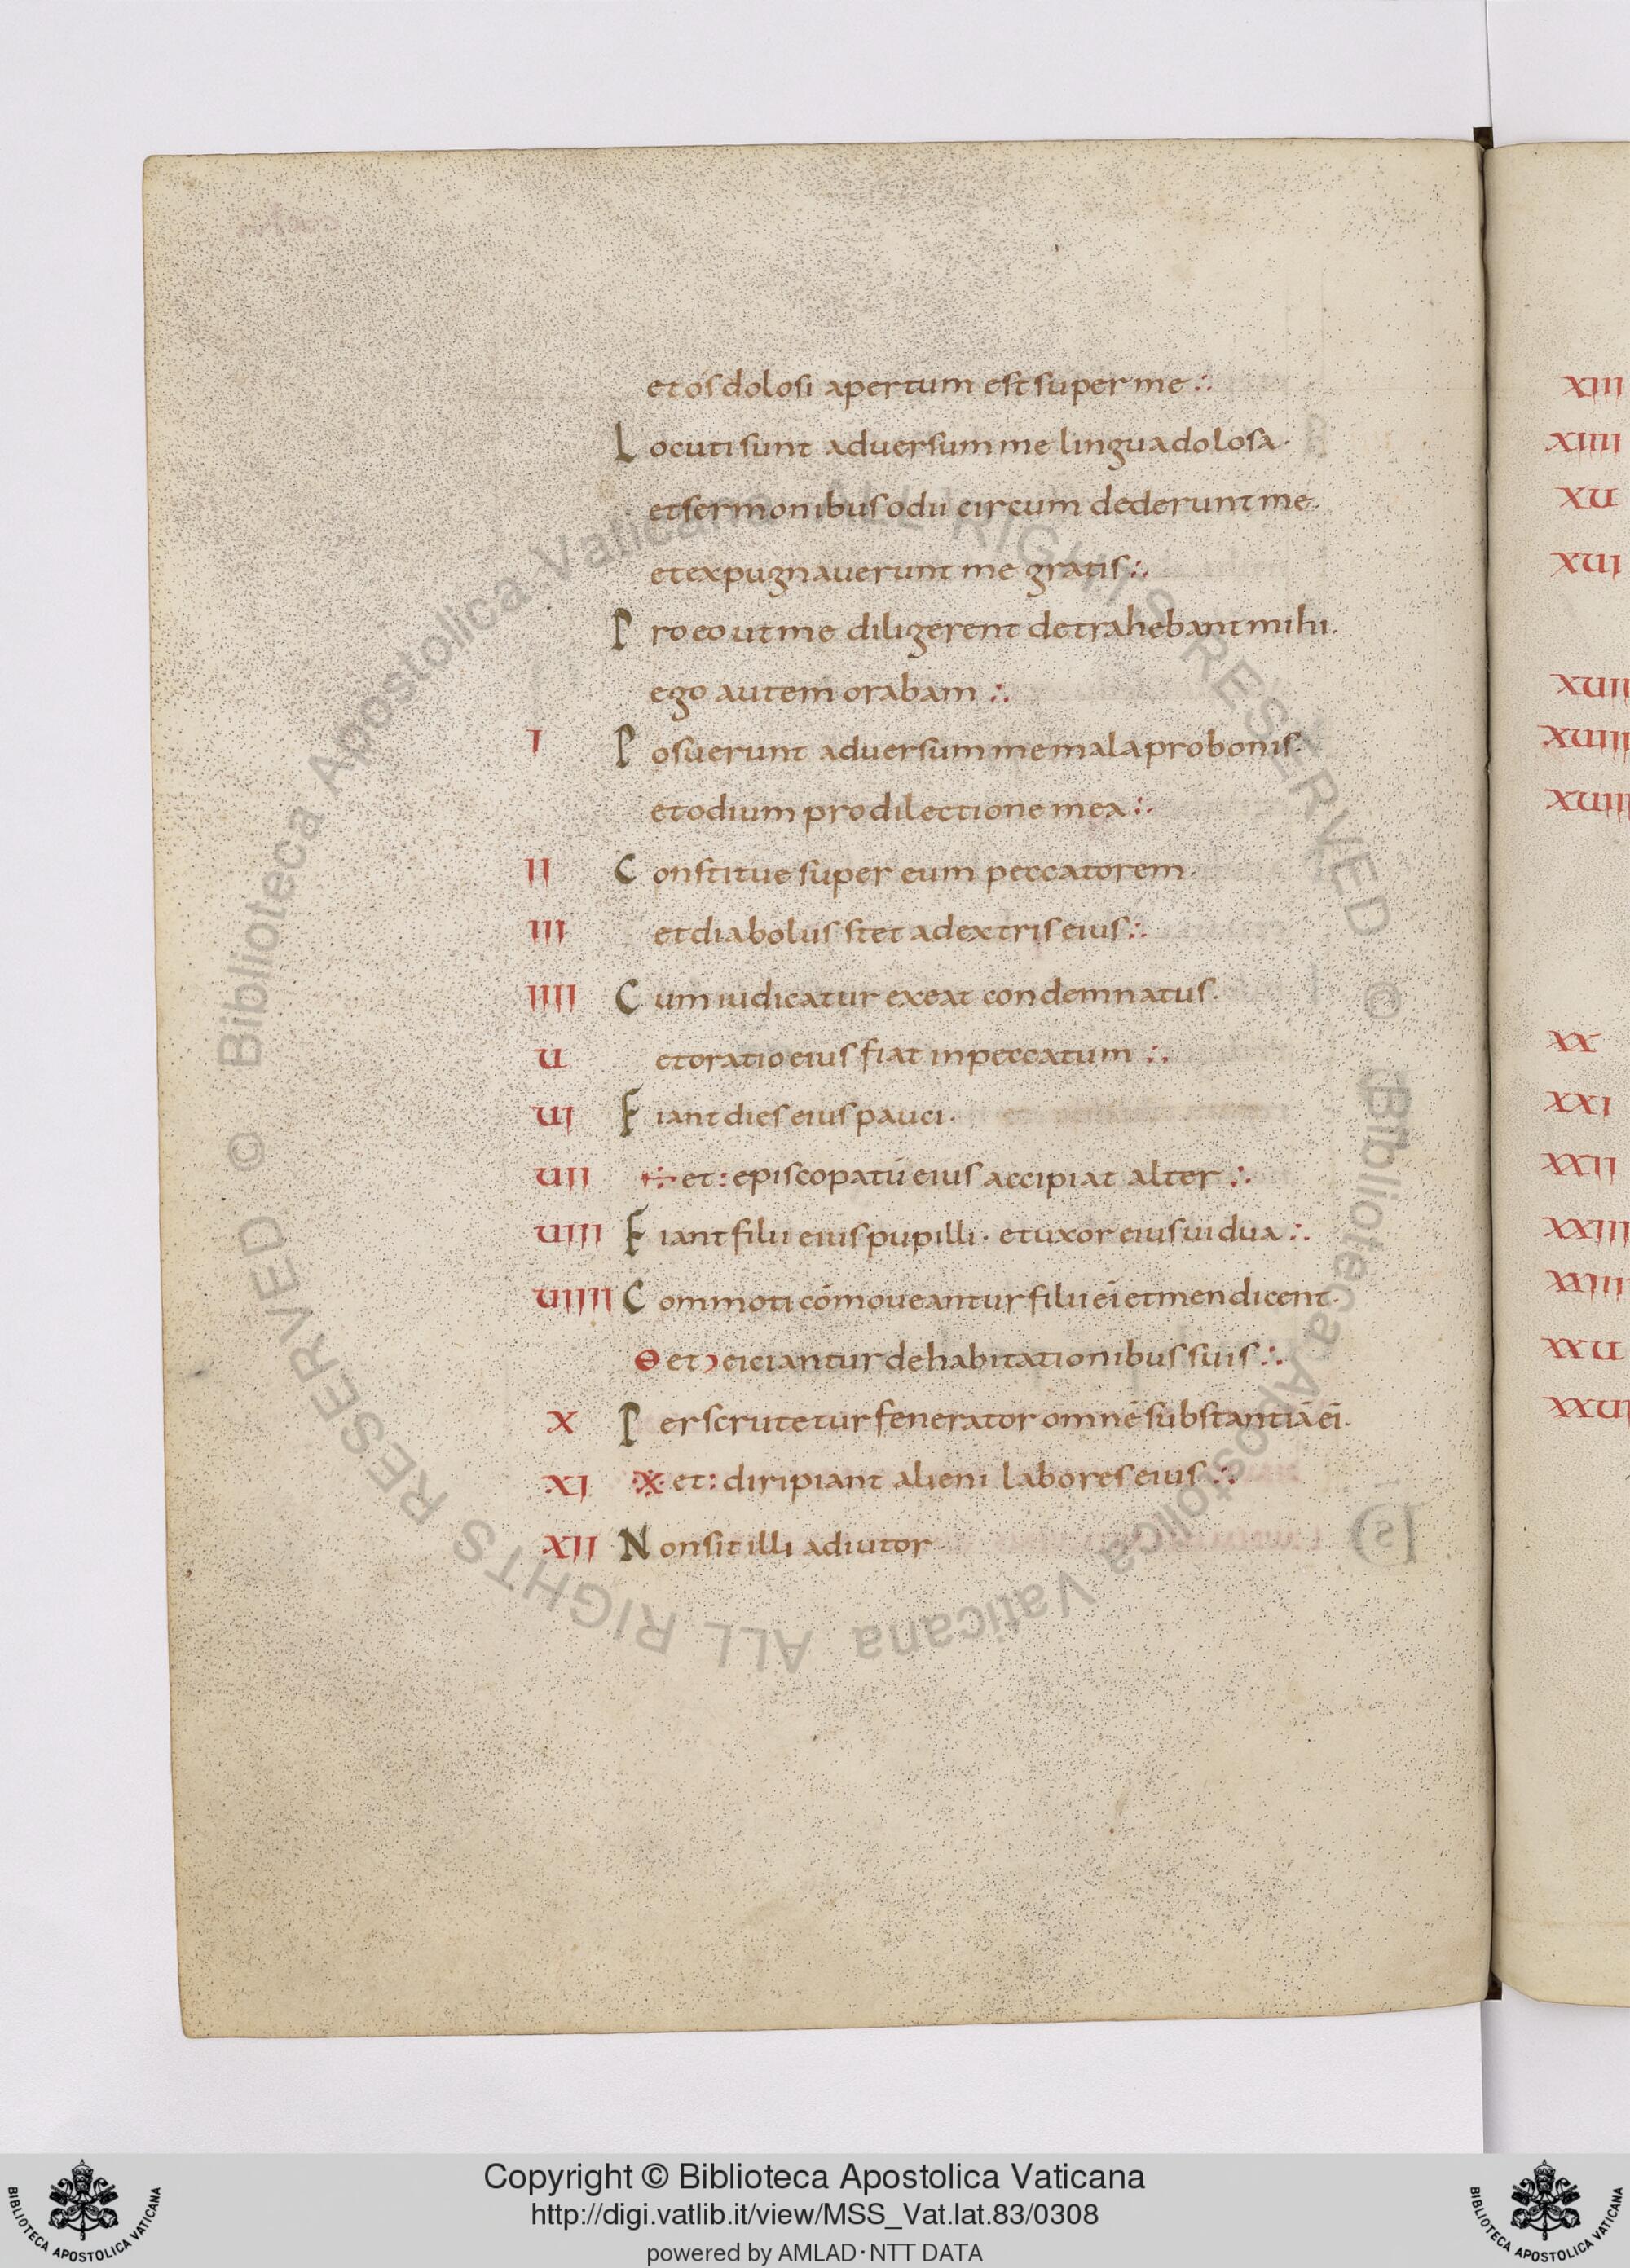 et os dolosi apertum est super me :·
Locuti sunt adversum me lingua dolosa·
et sermonibus odii circum dederunt me·
et expugnaverunt me gratis :·
Pro eo ut me diligerent detrahebant mihi·
ego autem orabam :·
I Posuerunt adversum me mala pro bonis·
et odium pro dilectione mea :·
II Constitue super eum peccatorem·
III et diabolus stet adextris eius :·
IIII Cum iudicatur exeat condemnatus·
U et oratio eius fiat in peccatum :·
UI Fiant dies eius pauci·
UII et: episcopatū eius accipiat alter :·
UIII Fiant filii eius pupilli· et uxor eius vidua :·
UIIII Commoti cōmoveantur filii eī et mendicent·
et eiciantur de habitationibus suis :·
X Perscrutetur fenerator omnē substantiā eī·
XI et: diripiant alieni labores eius :·
XII Non sit illi adiutor·
XIII
XIIII
XU
XUI
XUII
XUIII
XUIIII
XX
XXI
XXII
XXIII
XXIIII
XXU
XXUI
© Biblioteca Apostolica Vaticana ALL RIGHTS RESERVED © Biblioteca Apostolica Vaticana ALL RIGHTS RESERVED
Copyright © Biblioteca Apostolica Vaticana
http://digi.vatlib.it/view/MSS_Vat.lat.83/0308
powered by AMLAD·NTT DATA
BIBLIOTECA APOSTOLICA VATICANA
BIBLIOTECA APOSTOLICA VATICANA